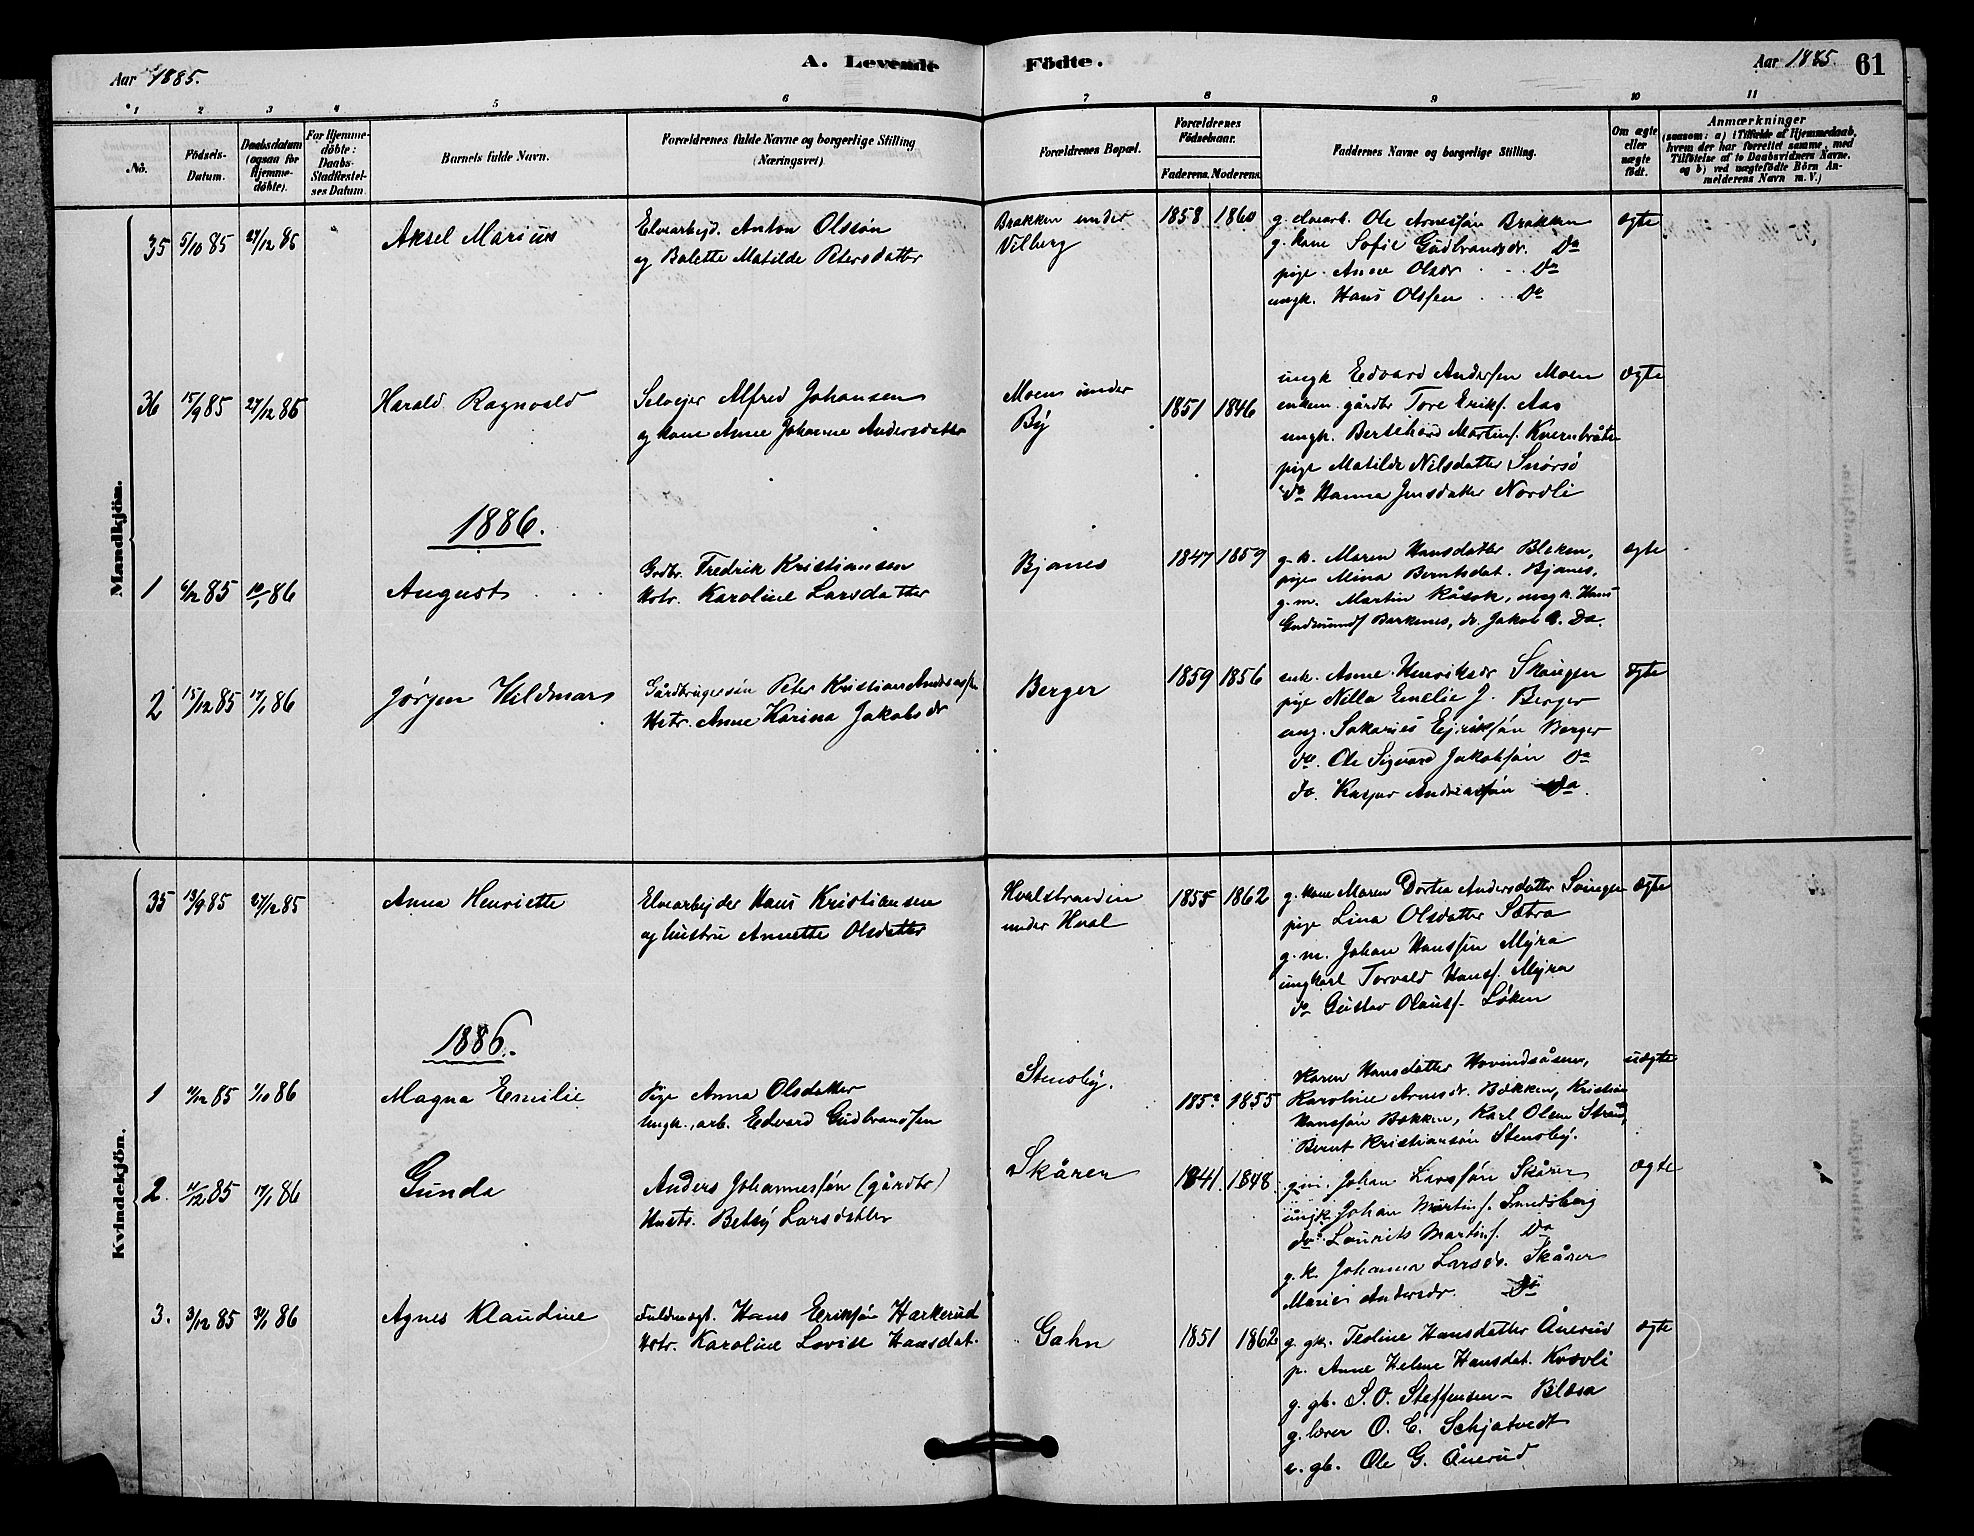 Aar 1885.
A. Levende Fødte.
Aar 1885. 61
1 2 3 4 5 6 7 8 9 10 11
No.
Fødsels-Datum.
Daabsdatum (ogsaa for Hjemmedøbte).
For Hjemmedøbte: Daabs-Stadfæstelses Datum.
Barnets fulde Navn.
Forældrenes fulde Navne og borgerlige Stilling (Næringsvei).
Forældrenes Bopæl.
Forældrenes Fødselsaar.
Faderens. Moderens.
Faddernes Navne og borgerlige Stilling.
Om ægte eller uægte født.
Anmærkninger
(saasom: a) i Tilfælde af Hjemmedaab, hvem der har forrettet samme, med Tilføielse af to Daabsvidners Navne, og b) ved uægtefødte Børn Anmelderens Navn m. V.)
Mandkjøn.
35 5/10 85 27/12 85 Aksel Marius
Elvearbejd. Anton Olssøn
og Balette Matilde Petersdatter
Brakken under
Vilberg
1858 1860
g. elvearb. Ole Arnessøn Brakken
g. kone Sofie Gudbrandsdr. Do
pige. Anne Olsdr. Do
ungk. Hans Olssen Do
ægte
36 15/9 85 27/12 85 Harald Ragnvald
Selvejer Alfred Johansen
og kone Anne Johanne Andersdatter
Moen under
By
1851 1846
ungk Edvard Andersen Moen
enkem. gårdbr Tore Eriks. Aas
ungk. Bernhard Martins. Kvernbråten
pige Matilde Nilsdatter Snørsø
do Hanna Jensdatter Nordli
ægte
1886.
1 6/12 85 10/1 86 August
Grdbr. Fredrik Kristiansen
Hstr. Karoline Larsdatter
Bjanes
1847 1859
g. k. Maren Hansdatter Bleken,
pige Mina Berntsdat. Bjanes,
g. m. Martin Råsok, ungk. Hans
Gudmunds Barkenes, do. Jakob A. Do.
ægte
2 15/12 85 17/1 86 Jørgen Hildmar
Gårdbrugersøn Peter Kristian Andreass.
Hstr. Anne Karina Jakobsdr
Berger
1859 1856
enk. Anne Henriksdr Skaugen
pige Nilla Emelie J. Berger
ung. Sakarias Ejrikssøn Berger
do. Ole Sigvard Jakobssøn Do
do. Kasper Andreassøn Do.
ægte
Kvindekjøn.
35 13/9 85 27/12 85 Anna Henriette
Elvearbejder Hans Kristiansen
og hustru Annette Olsdatter
Hvalstranden
under Hval
1855 1862
g. kone Maren Dortea Andersdatter
pige Lina Olsdatter Sætra
g. m. Johan Hanssen Myra
ungkarl Torvald Hanss. Myra
do Gustav Olauss. Løken
ægte
1886.
1 11/12 85 1/10 86 Magna Emilie
Pige Anna Olsdatter
Ungk., arb. Edvard Gudbrandsen
Stensby.
185? 1855
Karen Hansdatter Hovindsåsen,
Karoline Arnesdr. Bækken, Kristian
Hanssøn Bækken, Karl Olsen Strand,
Bernt Kristiansøn Stensby.
uægte
2. 11/12 85 17/1 86 Gunda
Anders Johannessøn (gårdbr)
Hustr. Betsy Larsdatter
Skårer
1841. 1848
gm. Johan Larssøn Skårer
ungk. Johan Martins. Sundsberg
do Laurits Martins. Do
g. k. Johanna Larsdr. Skårer
Marie Andersdr. Do
ægte
3. 3/12 85 31/1 86 Agnes Klaudine
Fuldmægt. Hans Erikssøn Harkerud
Hstr. Karoline Lovise Hansdat.
Gahn
1851 1862
g. gk. Teoline Hansdatter Ånerud
p. Anne Helene Hansdat. Kvævli
g. gb. S. O. Steffensen – Blæsa
g. lærer O. E. Schjatvedt
e. gb. Ole G. Ånerud
ægte